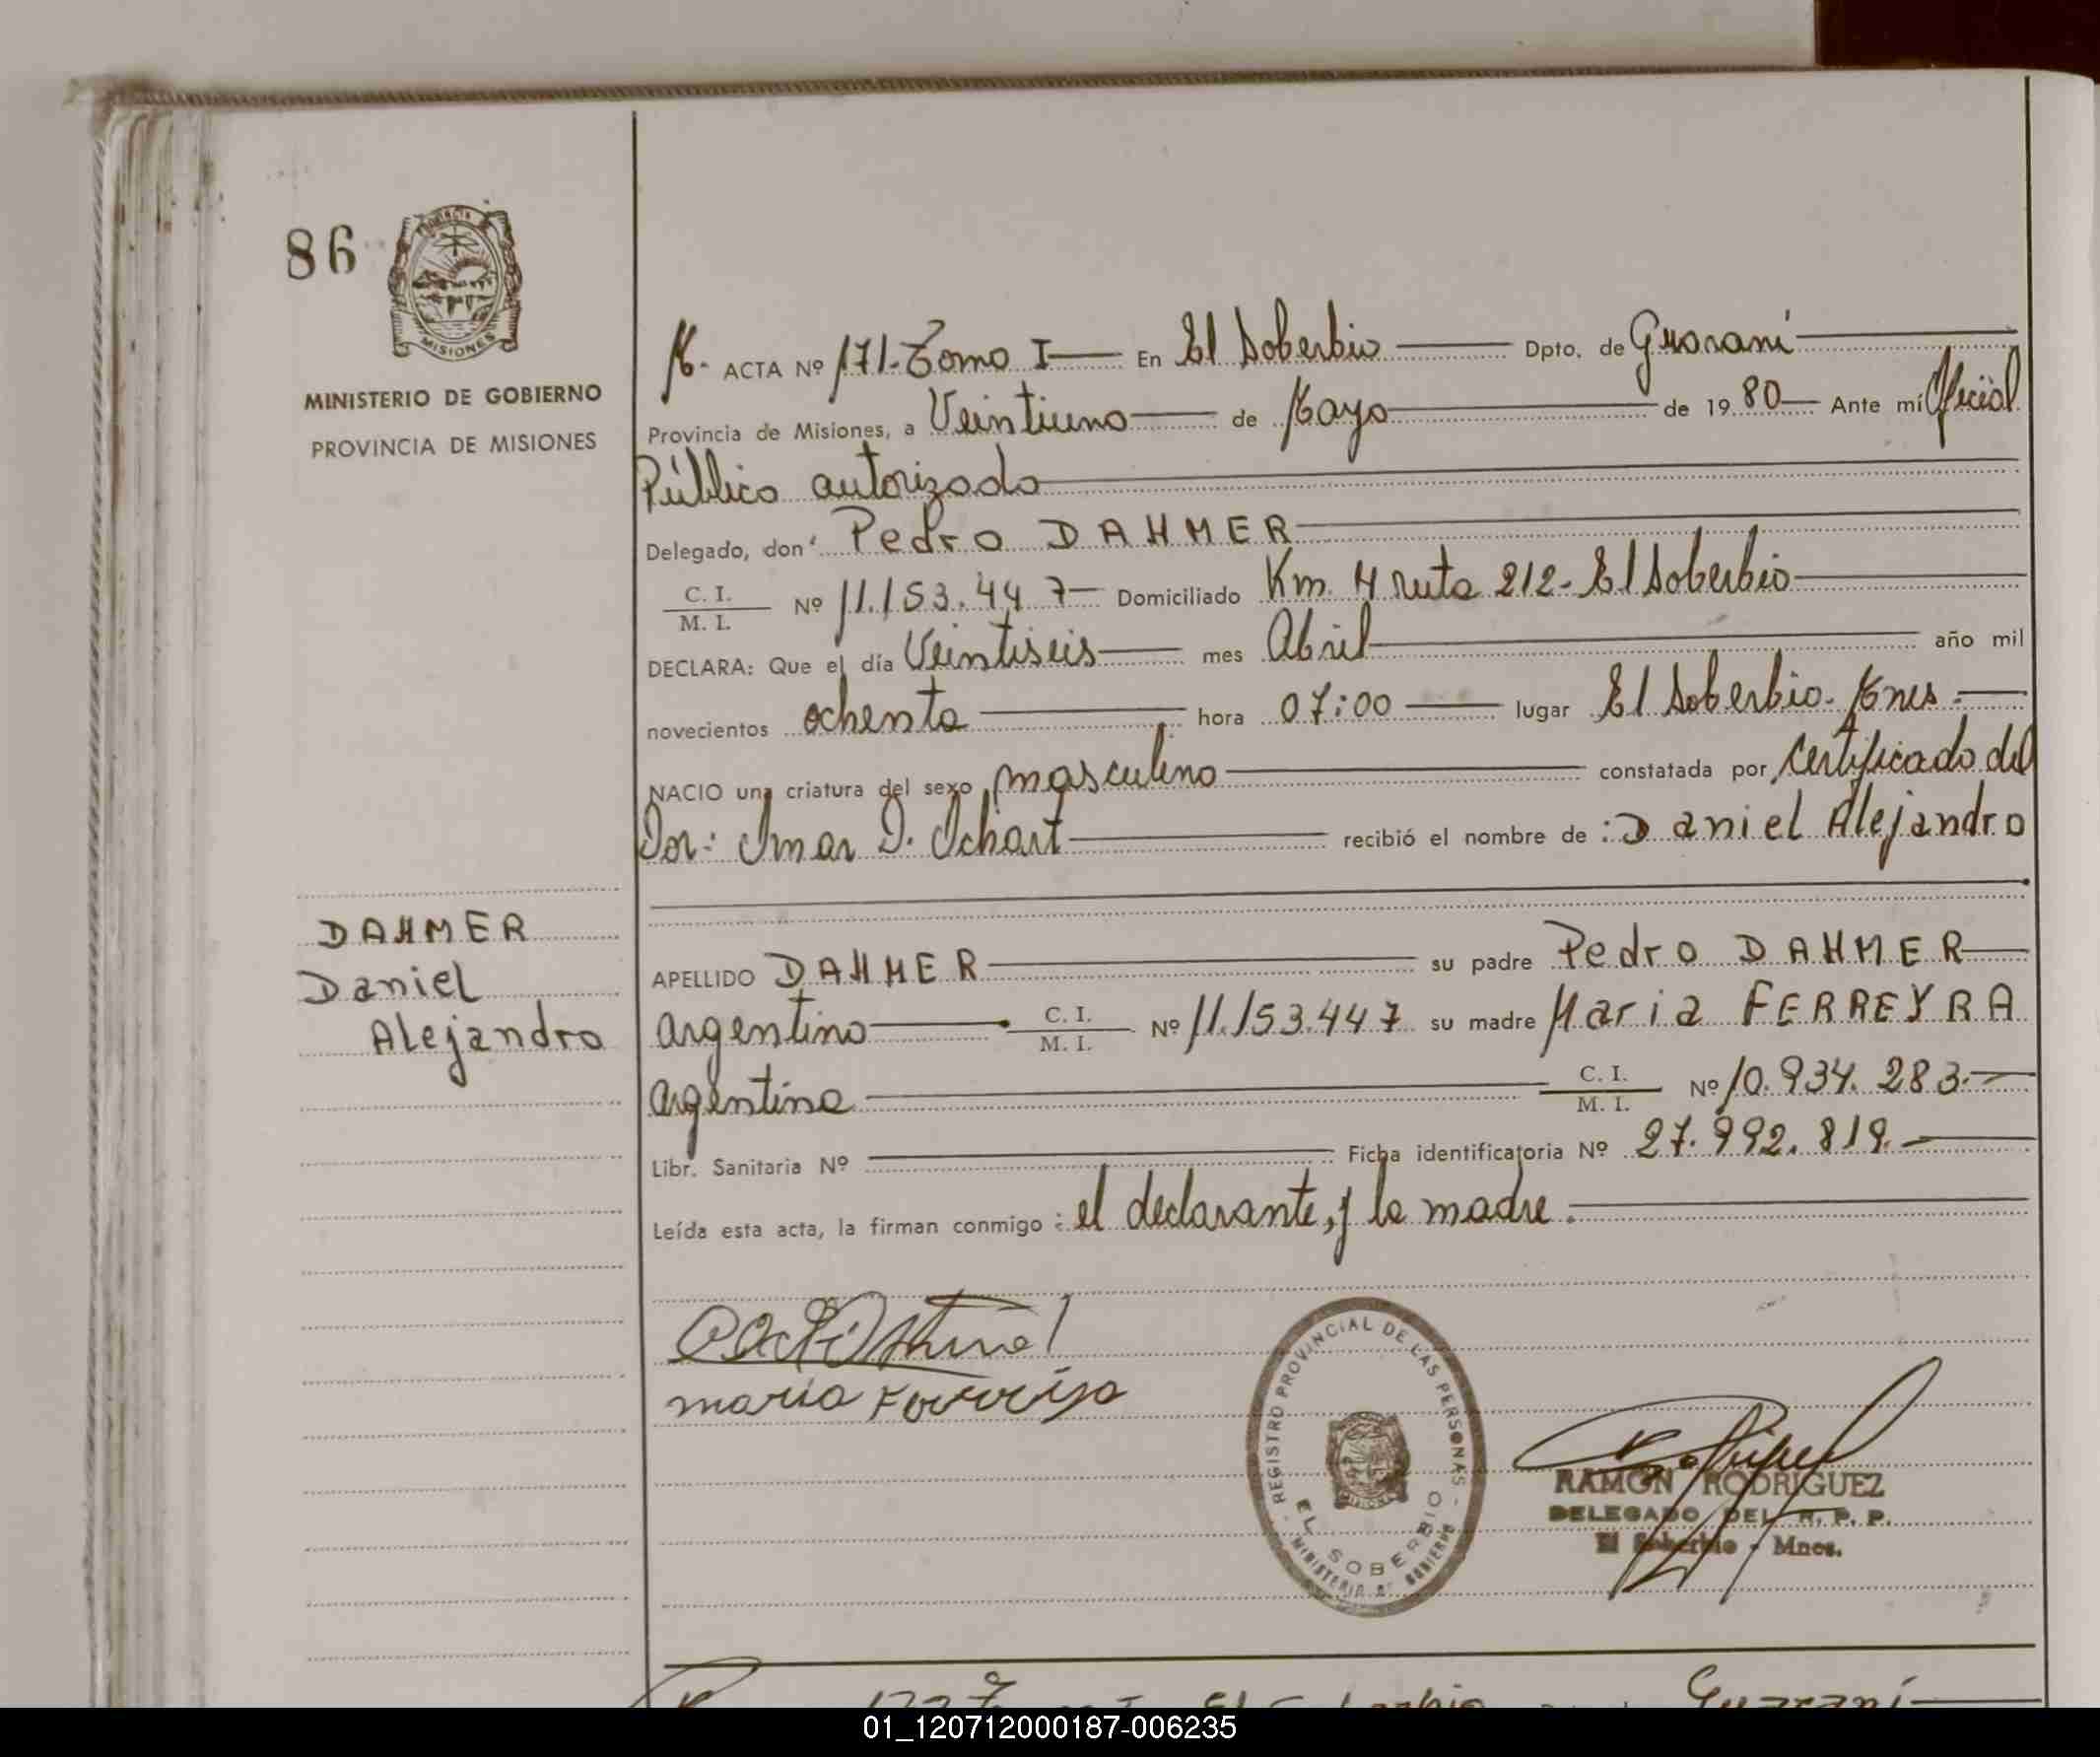 86
PROVINCIA
MISIONES
MINISTERIO DE GOBIERNO
PROVINCIA DE MISIONES
M. ACTA Nº 171-Tomo I En El Soberbio Dpto. de Guaraní
Provincia de Misiones, a Veintiuno de Mayo de 1980 Ante mí Oficial
Público autorizado
Delegado, don Pedro DAHMER
C. I.
M. I. Nº 11.153.447 Domiciliado Km. 4 ruta 212- El Soberbio
DECLARA: Que el día Veintiseis mes Abril año mil
novecientos ochenta hora 07:00 lugar El Soberbio. Mnes.
NACIO una criatura del sexo masculino constatada por Certificado del
Dor: Omar D. Ochart recibió el nombre de : Daniel Alejandro
DAHMER
Daniel
Alejandro
APELLIDO DAHMER su padre Pedro DAHMER
argentino C. I. M. I. Nº 11.153.447 su madre Maria FERREYRA
argentina C. I. M. I. Nº 10.934.283.
Libr. Sanitaria Nº Ficha identificatoria Nº 27.992.819.
Leída esta acta, la firman conmigo : el declarante, y la madre.
maria
REGISTRO PROVINCIAL DE LAS PERSONAS
EL SOBERBIO
MINISTERIO DE GOBIERNO
RAMON RODRIGUEZ
DELEGADO DEL R. P. P.
El Soberbio - Mnes.
Guaraní
01_120712000187-006235